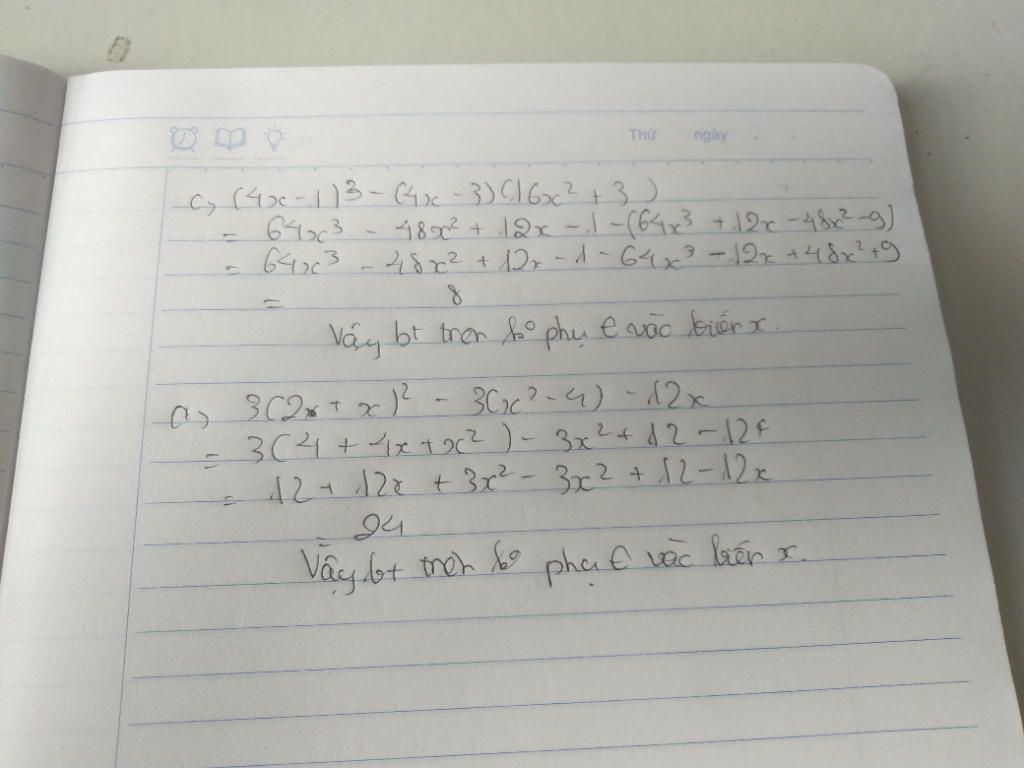 Thứ ngày
c, (4x - 1)³ - (4x - 3)(16x² + 3)
= 64x³ - 48x² + 12x - 1 - (64x³ + 12x - 48x² - 9)
= 64x³ - 48x² + 12x - 1 - 64x³ - 12x + 48x² + 9
= 8
Vậy bt trên ko phụ € vào biến x.
a, 3(2 + x)² - 3(x² - 4) - 12x
= 3(4 + 4x + x²) - 3x² + 12 - 12x
= 12 + 12x + 3x² - 3x² + 12 - 12x
= 24
Vậy bt trên ko phụ € vào biến x.